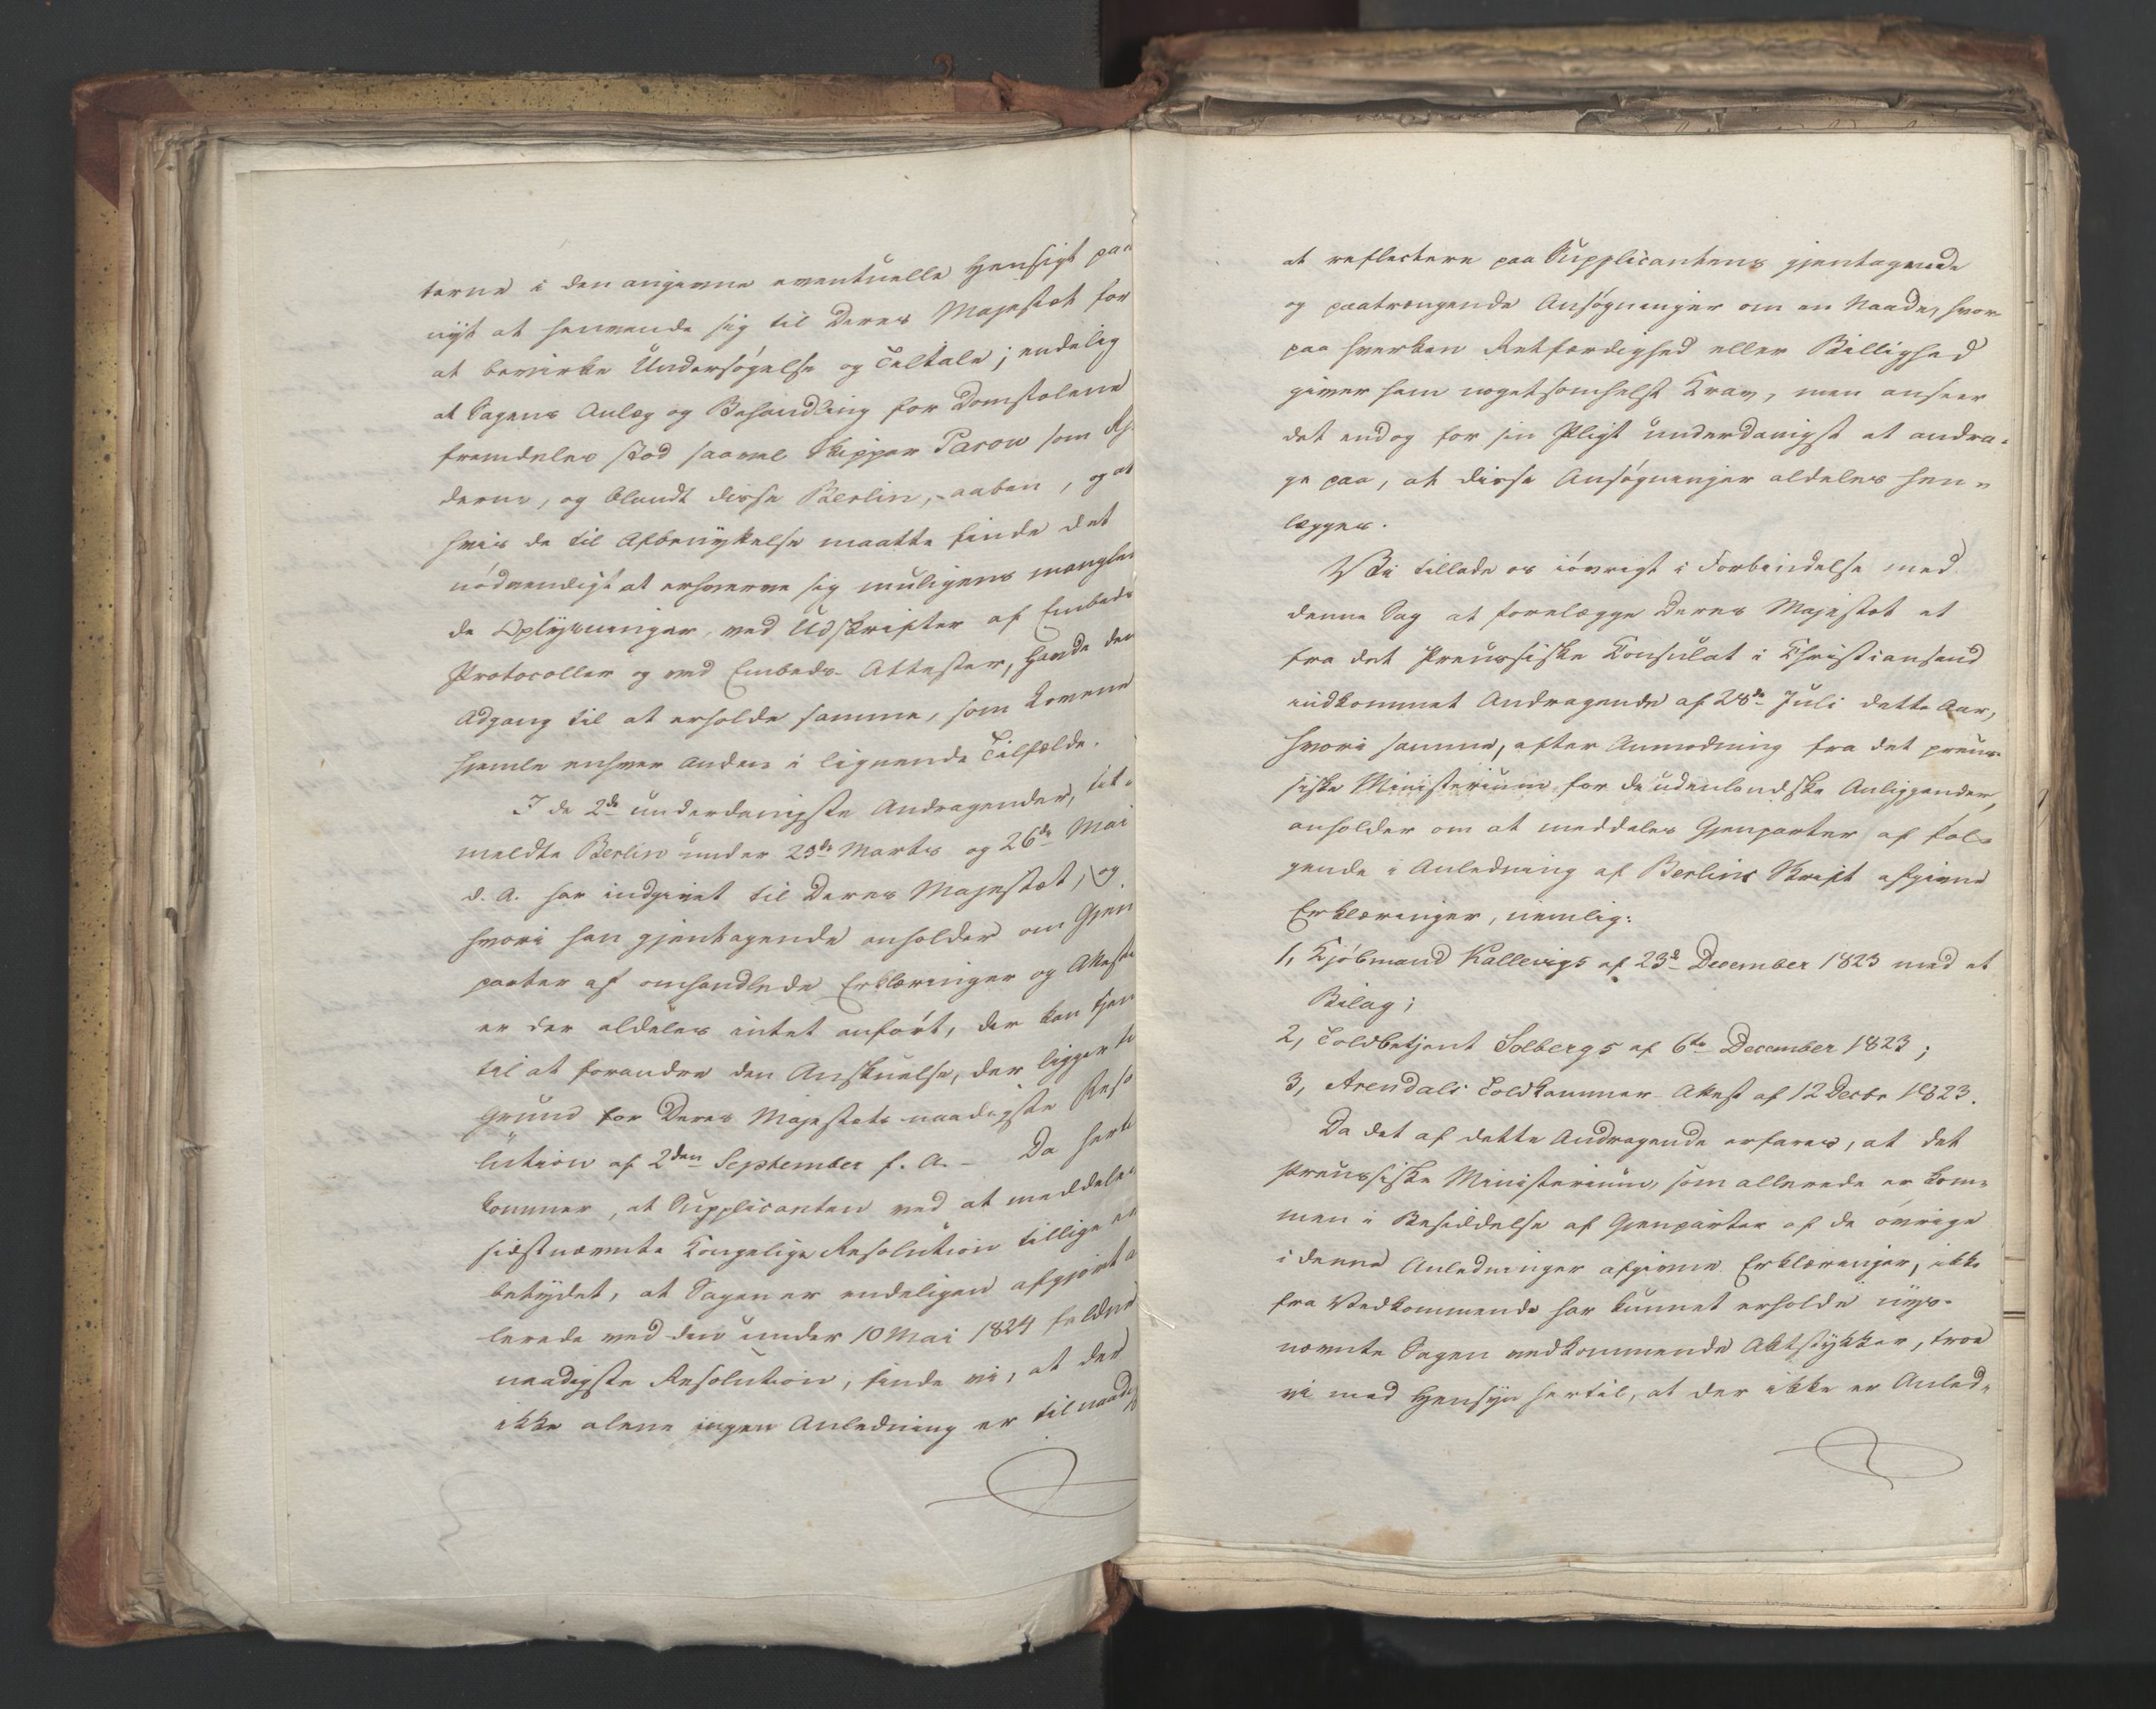 terne i den angivne eventuelle Hensigt paa
nyt at henvende sig til Deres Majestæt for
at bevirke Undersøgelse og Tiltale; endelig
at Sagens Anlæg og Behandling for Domstolene
fremdeles stod saavel Skipper Parow som
derne, og blandt disse Berlin, aaben, og at
hvis de til Afbenyttelse maatte finde det
nødvendigt at erhverve sig muligens manglen
de Oplysninger, ved Udskrifter af Embeds
Protocoller og ved Embeds-Attester, havde den
Adgang til at erholde samme, som Lovene
hjemle enhver Anden i lignende Tilfælde.
I de 2de underdanigste Andragender, bit-
meldte Berlin under 29de Marts og 26de Mai
d. A. har indgivet til Deres Majestæt, og
hvori han gjentagende anholder om Gjen
parter af omhandlede Erklæringer og Attester
er der aldeles intet anført, der kan tjene
til at forandre den Anskuelse, der ligger til
Grund for Deres Majestæts naadigste Reso
lution af 2den September f. A. – Da hertil
kommer, at Supplicanten ved at meddeles
sidstnævnte Kongelige Resolution tillige er
betydet, at Sagen er endeligen afgjort al
lerede ved den under 10 Mai 1824 faldne
naadigste Resolution, finde vi, at der
ikke alene ingen Anledning er til naadigst
at reflectere paa Supplicantens gjentagende
og paatrængende Ansøgninger om en Naade, hvor-
paa hverken Retfærdighed eller Billighed
giver ham nogetsomhelst Krav, men anseer
det endog for sin Pligt underdanigst at andra-
ge paa, at disse Ansøgninger aldeles hen-
lægges.
Vi tillade os iøvrigt i Forbindelse med
denne Sag at forelægge Deres Majestæt et
fra det Preussiske Consulat i Christiansand
indkommet Andragende af 28de Juli dette Aar,
hvori samme, efter Anmodning fra det preus-
siske Ministerium for de udenlandske Anliggender,
anholder om at meddeles Gjenparter af føl-
gende i Anledning af Berlins Skrift afgivne
Erklæringer, nemlig:
1, Kjøbmand Kallevigs af 23de December 1823 med et
Bilag;
2, Toldbetjent Solbergs af 6te December 1823;
3, Arendals Toldkammer-Attest af 12 Decbr 1823.
Da det af dette Andragende erfares, at det
Preussiske Ministerium, som allerede er kom-
men i Besiddelse af Gjenparter af de øvrige
i denne Anledninger afgivne Erklæringer, ikke
fra Vedkommende har kunnet erholde nys-
nævnte Sagen vedkommende Aktstykker, troe
vi med Hensyn hertil, at der ikke er Anled-